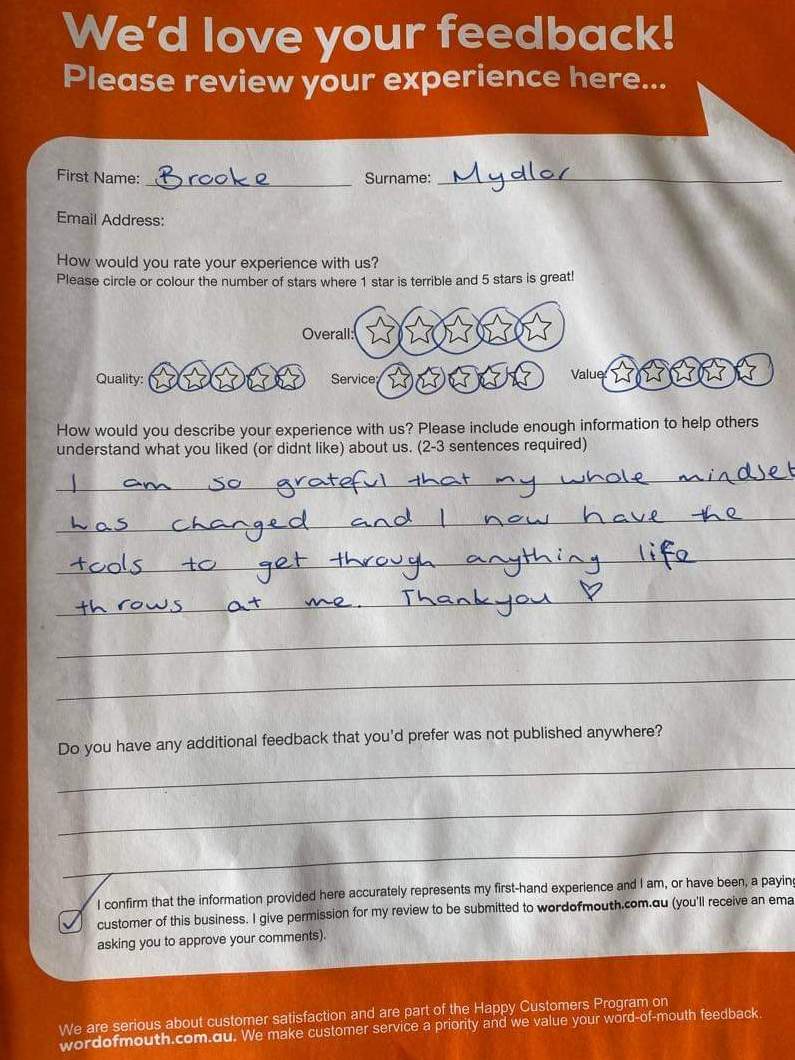 We'd love your feedback!
Please review your experience here...
First Name: Brooke Surname: Mydlar
Email Address:
How would you rate your experience with us?
Please circle or colour the number of stars where 1 star is terrible and 5 stars is great!
Overall:
Quality: Service: Value:
How would you describe your experience with us? Please include enough information to help others
understand what you liked (or didnt like) about us. (2-3 sentences required)
I am so grateful that my whole mindset
has changed and I now have the
tools to get through anything life
throws at me. Thankyou ♡
Do you have any additional feedback that you'd prefer was not published anywhere?
I confirm that the information provided here accurately represents my first-hand experience and I am, or have been, a paying
customer of this business. I give permission for my review to be submitted to wordofmouth.com.au (you'll receive an ema
asking you to approve your comments).
We are serious about customer satisfaction and are part of the Happy Customers Program on
wordofmouth.com.au. We make customer service a priority and we value your word-of-mouth feedback.